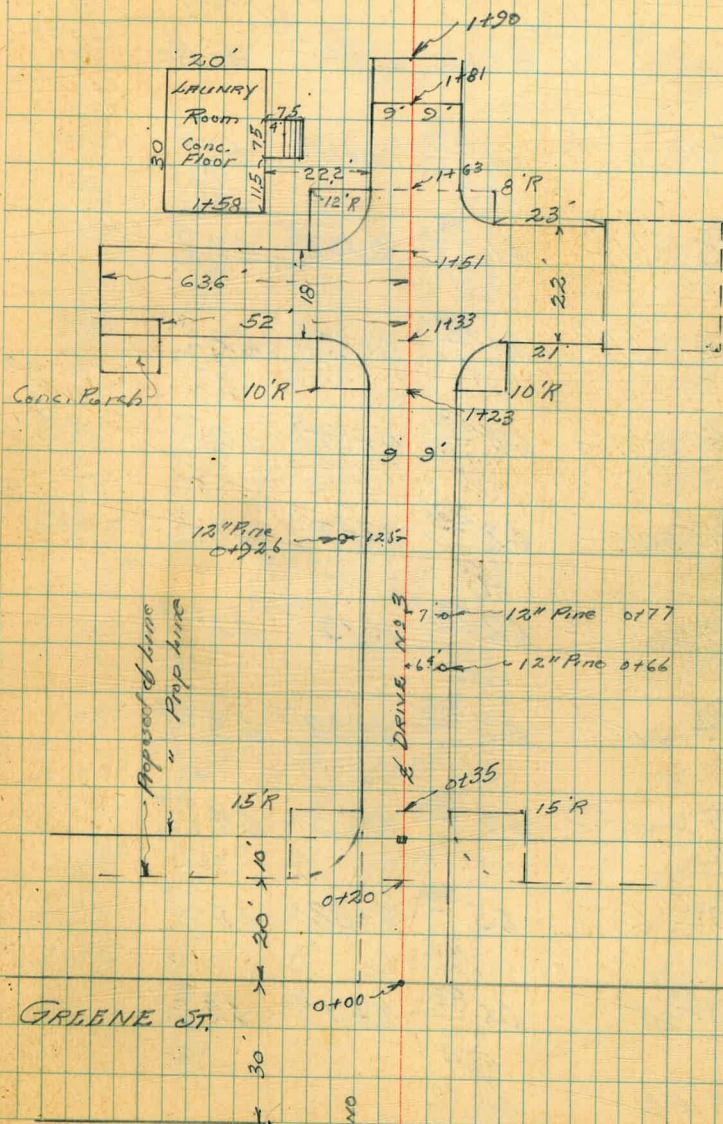 1+90
20'
LAUNRY
Room
Conc.
Floor
30
7.5
4'
7.5
11.5
1+58
22.2'
12'R
1+81
9' 9'
1+63
8'R
23'
63.6'
18'
1+51
22'
52'
1+33
21'
Conc. Porch
10'R
10'R
1+23
9' 9'
12" Pine
0+92.6
12.5
7'
12" Pine 0+77
6.4'
12" Pine 0+66
DRIVE No 3
Proposed
Line
" Prop Line
0+35
15'R
15'R
10'
0+20
20'
0+00
GREENE ST.
30'